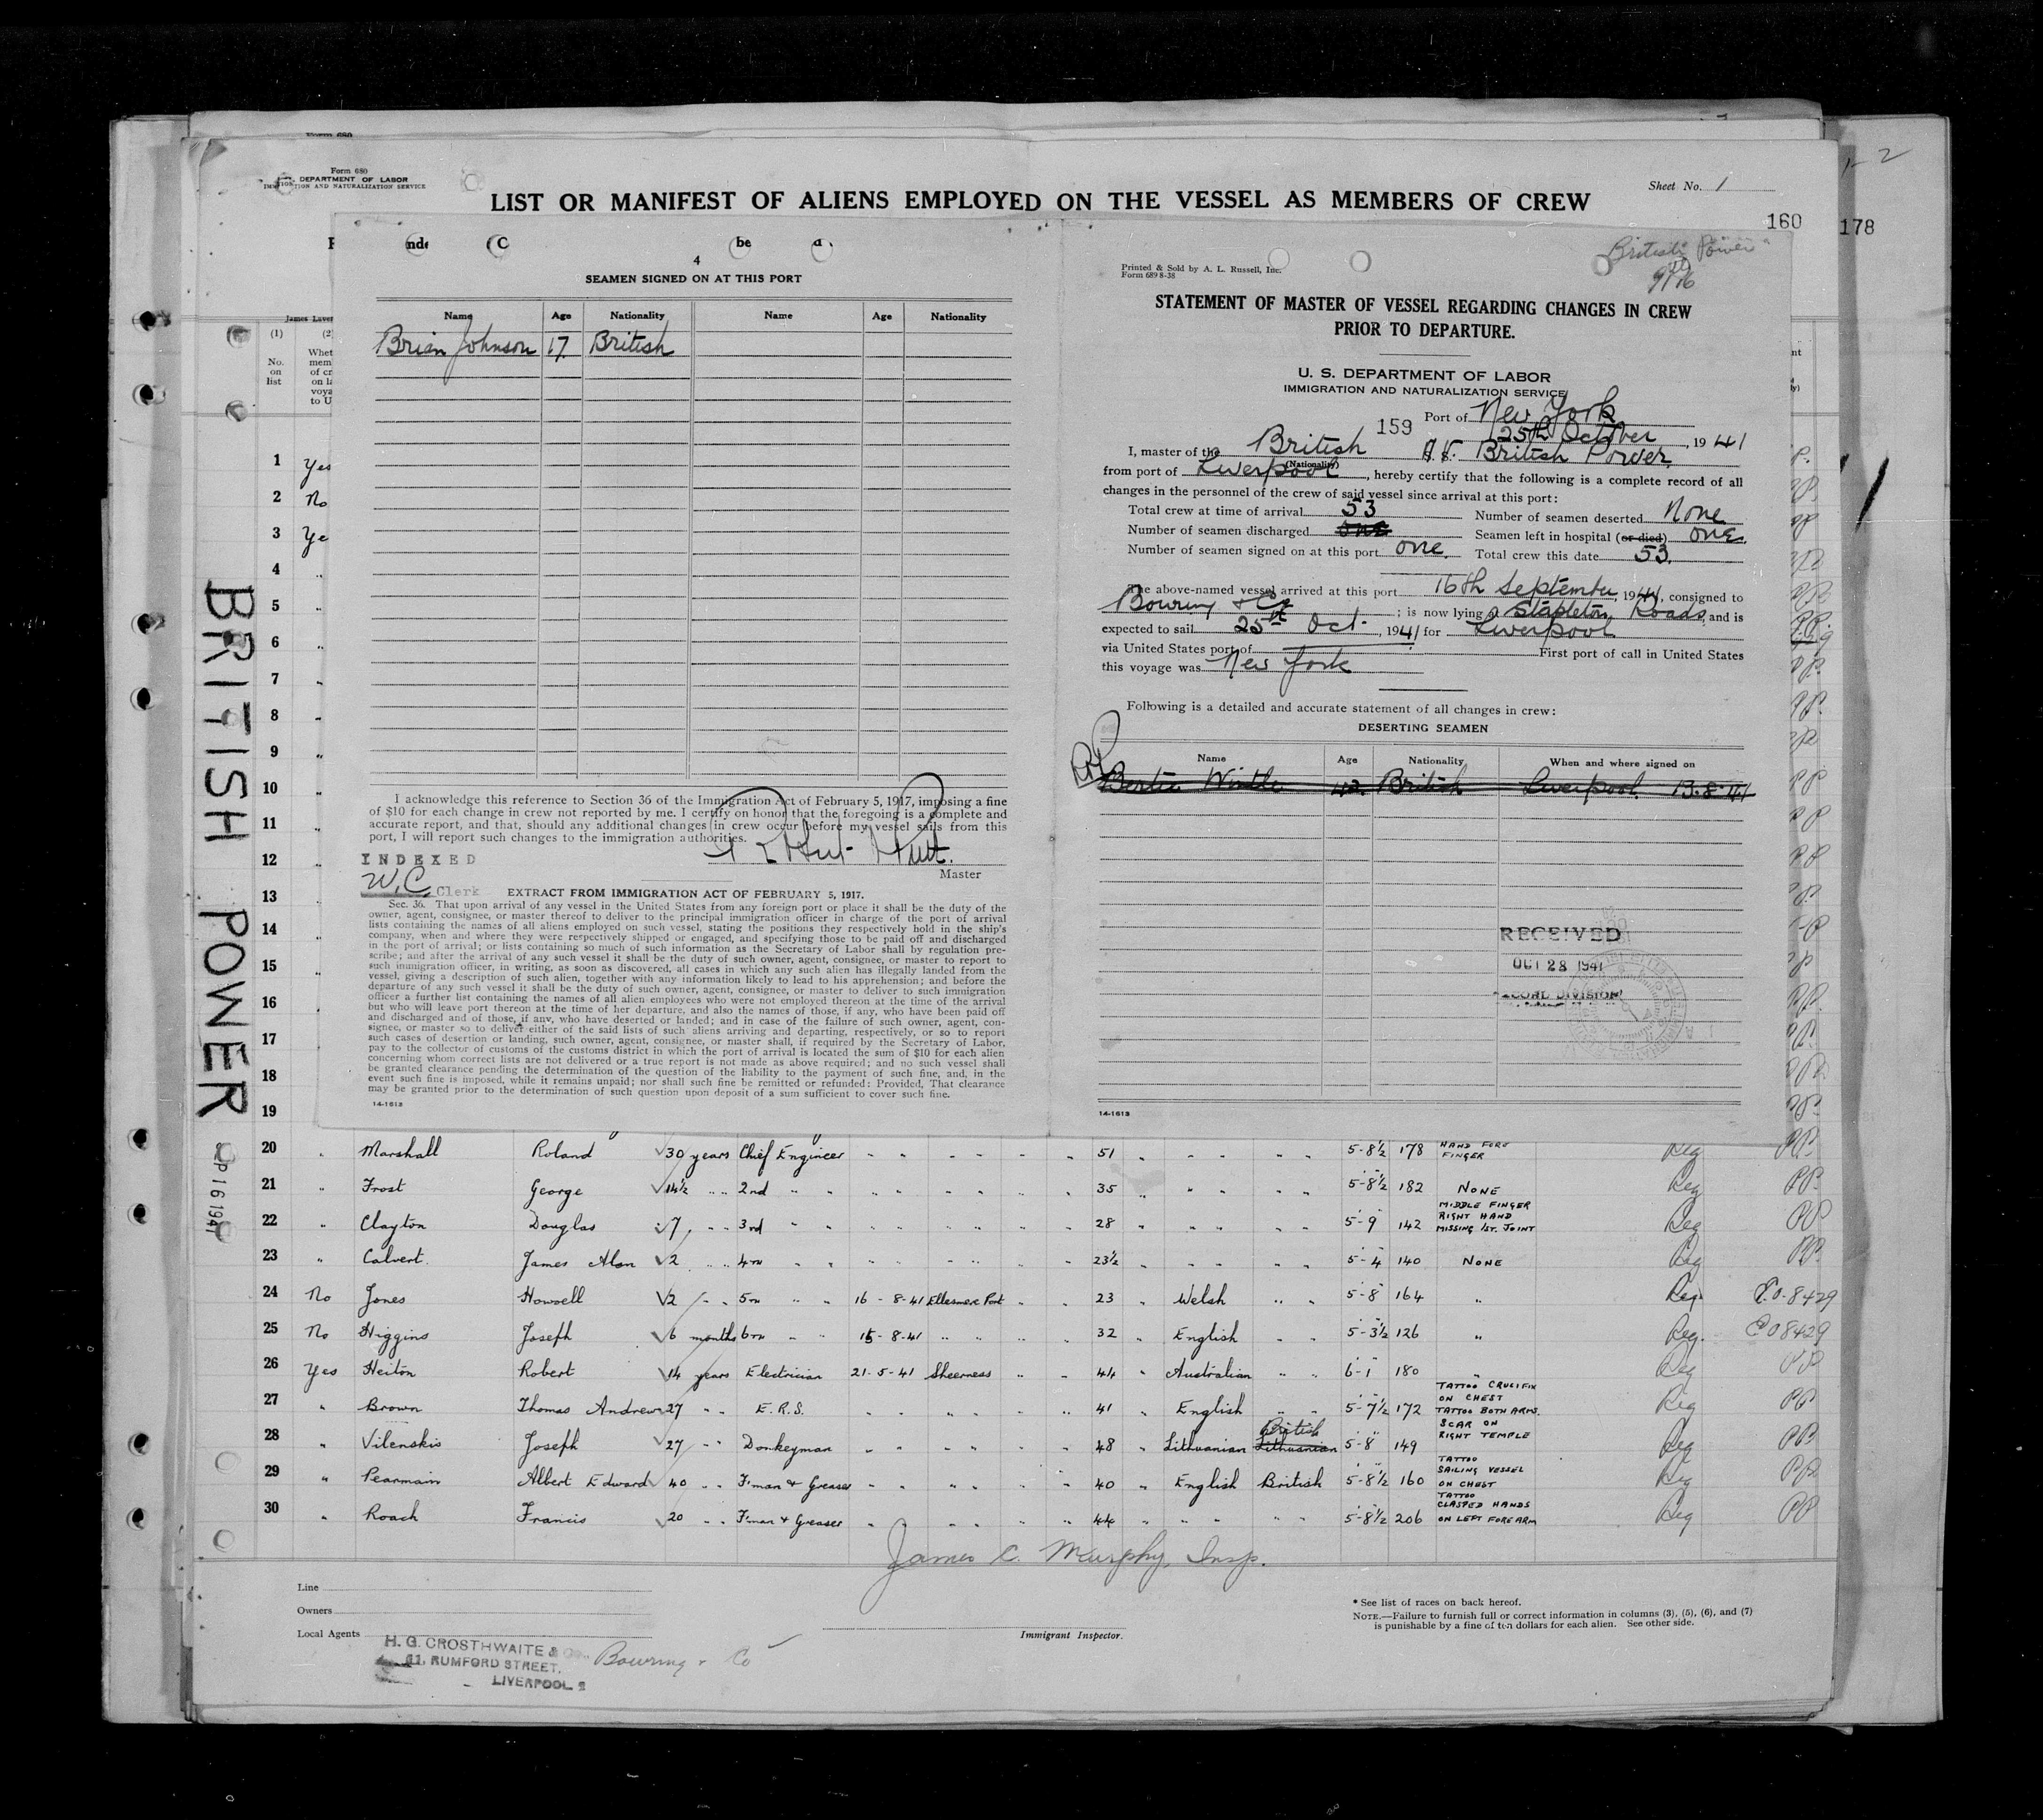 Form 680
DEPARTMENT OF LABOR
IMMIGRATION AND NATURALIZATION SERVICE
Sheet No. 1
LIST OR MANIFEST OF ALIENS EMPLOYED ON THE VESSEL AS MEMBERS OF CREW
160
178
BRITISH POWER
SEP 16 1941
4
SEAMEN SIGNED ON AT THIS PORT
Name Age Nationality Name Age Nationality
Brian Johnson 17 British
I acknowledge this reference to Section 36 of the Immigration Act of February 5, 1917, imposing a fine
of $10 for each change in crew not reported by me. I certify on honor that the foregoing is a complete and
accurate report, and that, should any additional changes in crew occur before my vessel sails from this
port, I will report such changes to the immigration authorities.
Master
INDEXED
W.C. Clerk
EXTRACT FROM IMMIGRATION ACT OF FEBRUARY 5, 1917.
Sec. 36. That upon arrival of any vessel in the United States from any foreign port or place it shall be the duty of the
owner, agent, consignee, or master thereof to deliver to the principal immigration officer in charge of the port of arrival
lists containing the names of all aliens employed on such vessel, stating the positions they respectively hold in the ship's
company, when and where they were respectively shipped or engaged, and specifying those to be paid off and discharged
in the port of arrival; or lists containing so much of such information as the Secretary of Labor shall by regulation pre-
scribe; and after the arrival of any such vessel it shall be the duty of such owner, agent, consignee, or master to report to
such immigration officer, in writing, as soon as discovered, all cases in which any such alien has illegally landed from the
vessel, giving a description of such alien, together with any information likely to lead to his apprehension; and before the
departure of any such vessel it shall be the duty of such owner, agent, consignee, or master to deliver to such immigration
officer a further list containing the names of all alien employees who were not employed thereon at the time of the arrival
but who will leave port thereon at the time of her departure, and also the names of those, if any, who have been paid off
and discharged and of those, if any, who have deserted or landed; and in case of the failure of such owner, agent, con-
signee, or master so to deliver either of the said lists of such aliens arriving and departing, respectively, or so to report
such cases of desertion or landing, such owner, agent, consignee, or master shall, if required by the Secretary of Labor,
pay to the collector of customs of the customs district in which the port of arrival is located the sum of $10 for each alien
concerning whom correct lists are not delivered or a true report is not made as above required; and no such vessel shall
be granted clearance pending the determination of the question of the liability to the payment of such fine, and, in the
event such fine is imposed, while it remains unpaid; nor shall such fine be remitted or refunded: Provided, That clearance
may be granted prior to the determination of such question upon deposit of a sum sufficient to cover such fine.
14-1613
"British Power"
9/16
Printed & Sold by A. L. Russell, Inc.
Form 689 8-38
STATEMENT OF MASTER OF VESSEL REGARDING CHANGES IN CREW
PRIOR TO DEPARTURE.
U. S. DEPARTMENT OF LABOR
IMMIGRATION AND NATURALIZATION SERVICE
159 Port of New York
25th October, 1941
I, master of the British S.S. British Power
(Nationality)
from port of Liverpool, hereby certify that the following is a complete record of all
changes in the personnel of the crew of said vessel since arrival at this port:
Total crew at time of arrival 53 Number of seamen deserted None
Number of seamen discharged one Seamen left in hospital (or died) one.
Number of seamen signed on at this port one. Total crew this date 53.
The above-named vessel arrived at this port 16th September, 1941, consigned to
Bowring & Co; is now lying @ Stapleton Roads, and is
expected to sail 25th Oct., 1941 for Liverpool
via United States port of First port of call in United States
this voyage was New York
Following is a detailed and accurate statement of all changes in crew:
DESERTING SEAMEN
Name Age Nationality When and where signed on
Bertie Wintle 42. British Liverpool 13.8.41
RECEIVED
OCT 28 1941
14-1613
(1) (2)
No. on list
1 Yes
2 No
3 Yes
4 "
5 "
6 "
7 "
8 "
9 "
10 "
11 "
12 "
13 "
14 "
15 "
16 "
17 "
18 "
19
20 " Marshall Roland 30 years Chief Engineer " " " " " " 51 " " " " " 5-8½ 178 HAND FORE FINGER Reg PP
21 " Frost George 14½ " " 2nd " " " " " " " " 35 " " " " " 5-8½ 182 NONE Reg PP
22 " Clayton Douglas 7 " " 3rd " " " " " " " " 28 " " " " " 5-9 142 MIDDLE FINGER RIGHT HAND MISSING 1ST. JOINT Reg PP
23 " Calvert James Alan 2 " " 4TH " " " " " " " " 23½ " " " " " 5-4 140 NONE Reg PP
24 No Jones Howell 2 " " 5TH " " 16-8-41 Ellesmere Port " " 23 " Welsh " " 5-8 164 " Reg. P.O. 8429
25 No Higgins Joseph 6 months 6TH " " 15-8-41 " " " " 32 " English " " 5-3½ 126 " Reg. P.O 8429
26 Yes Heiton Robert 14 years Electrician 21-5-41 Sheerness " " 44 " Australian " " 6-1 180 " Reg PP
27 " Brown Thomas Andrew 27 " " E.R.S. " " " " " " 41 " English " " 5-7½ 172 TATTOO CRUCIFIX ON CHEST TATTOO BOTH ARMS. Reg PP
28 " Vilenskis Joseph 27 " " Donkeyman " " " " " " 48 " Lithuanian Lithuanian British 5-8 149 SCAR ON RIGHT TEMPLE Reg PP
29 " Pearmain Albert Edward 40 " " F'man & Greaser " " " " " " 40 " English British 5-8½ 160 TATTOO SAILING VESSEL ON CHEST Reg PP
30 " Roach Francis 20 " " F'man & Greaser " " " " " " 44 " " " " " 5-8½ 206 TATTOO CLASPED HANDS ON LEFT FOREARM Reg PP
James C. Murphy, Insp.
Immigrant Inspector.
Line
Owners
Local Agents
H. G. CROSTHWAITE & Co.
11, RUMFORD STREET,
LIVERPOOL 2
Bowring & Co
* See list of races on back hereof.
NOTE.—Failure to furnish full or correct information in columns (3), (5), (6), and (7)
is punishable by a fine of ten dollars for each alien. See other side.